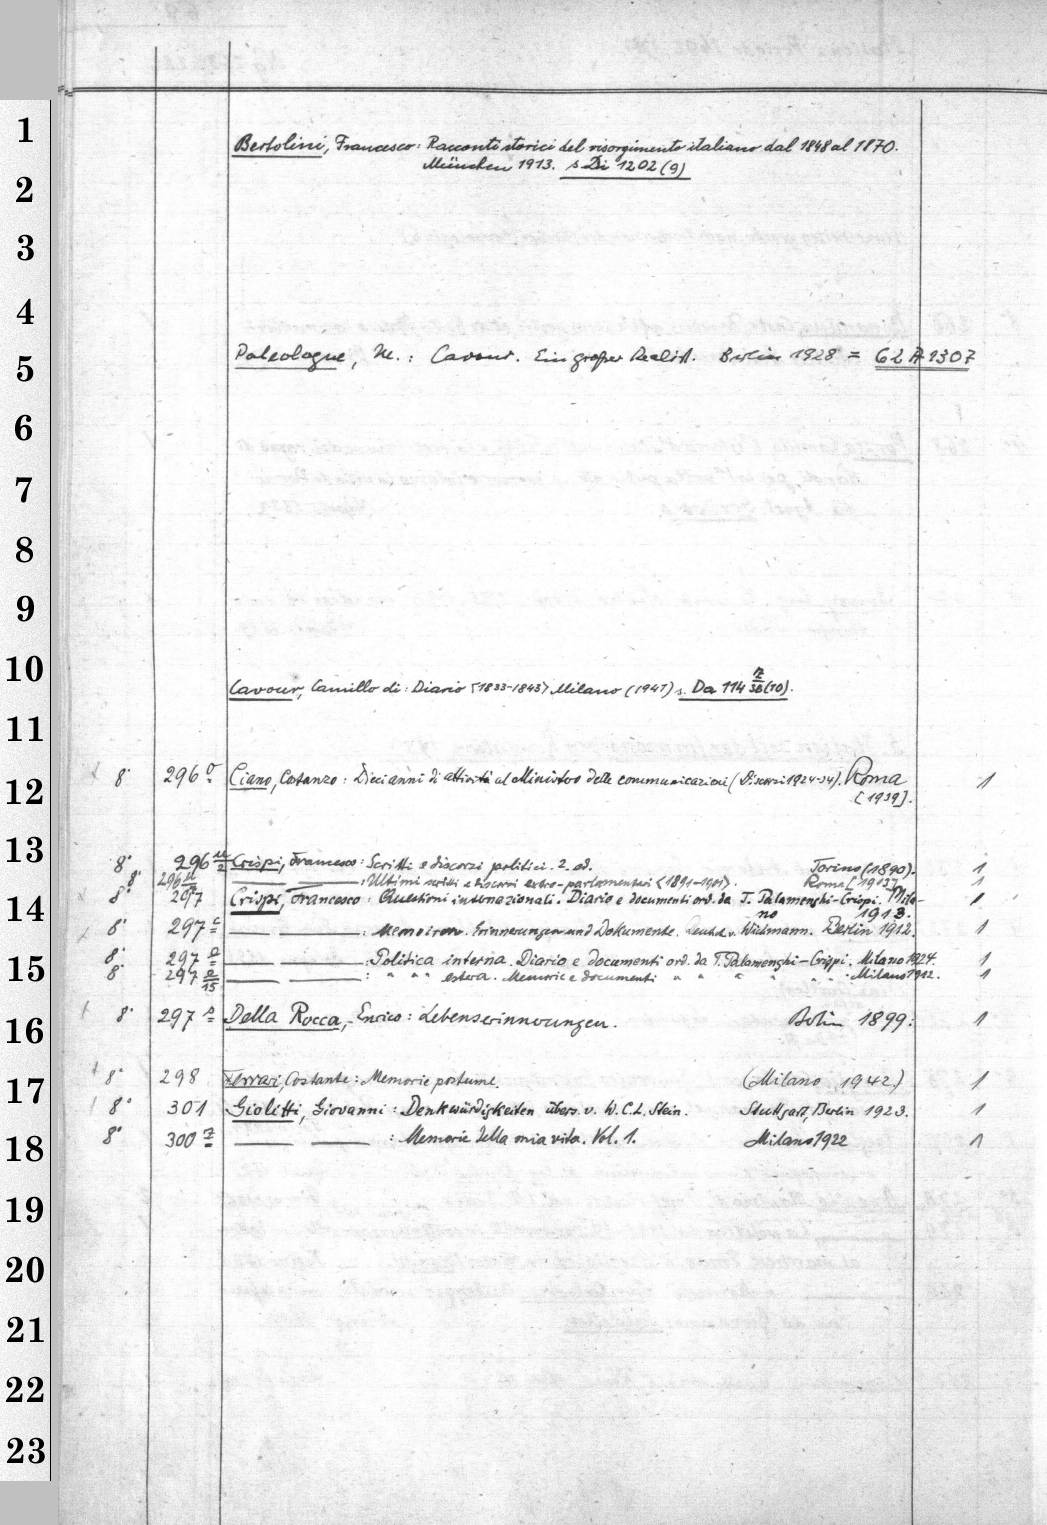 1
Bertolini, Francesco: Racconti storici del risorgimento italiano dal 1848 al 1870.
München 1913. s. Di 1202 (9)
2
3
4
Paleologue, M.: Cavour. Ein großer Realist. Berlin 1928 = 62 A 1307
5
6
7
8
9
10
Cavour, Camillo di: Diario <1833-1843> Milano (1941) s. Da 114 (10).
11
8° 296 Ciano, Costanzo: Dieci anni di attività al Ministero delle communicazioni (Discorsi 1924-34). Roma 1
12
[1939].
13
8° 296 Crispi, Francesco: Scritti e discorsi politici. 2. ed. Torino (1890). 1
8° 296 — — : Ultimi scritti e discorsi extra-parlamentari <1891-1901>. Roma [1913] 1
8° 297 Crispi, Francesco: Questioni internazionali. Diario e documenti ord. da T. Palamenghi-Crispi. Mila- 1
14
no 1913.
8° 297 c — — : Memoiren. Erinnerungen und Dokumente. Deutsch v. Wichmann. Berlin 1912. 1
8° 297 e — — : Politica interna. Diario e documenti ord. da T. Palamenghi-Crispi. Milano 1924. 1
15
8° 297 e/15 — — : " " " estera. Memorie e documenti " " " " " " Milano 1912. 1
8° 297 Della Rocca, Enrico: Lebenserinnerungen. Berlin 1899. 1
16
8° 298 Ferrari, Costante: Memorie postume. (Milano 1942) 1
17
8° 301 Giolitti, Giovanni: Denkwürdigkeiten übers. v. W.C.L. Stein. Stuttgart, Berlin 1923. 1
8° 300 — — : Memorie della mia vita. Vol. 1. Milano 1922 1
18
19
20
21
22
23